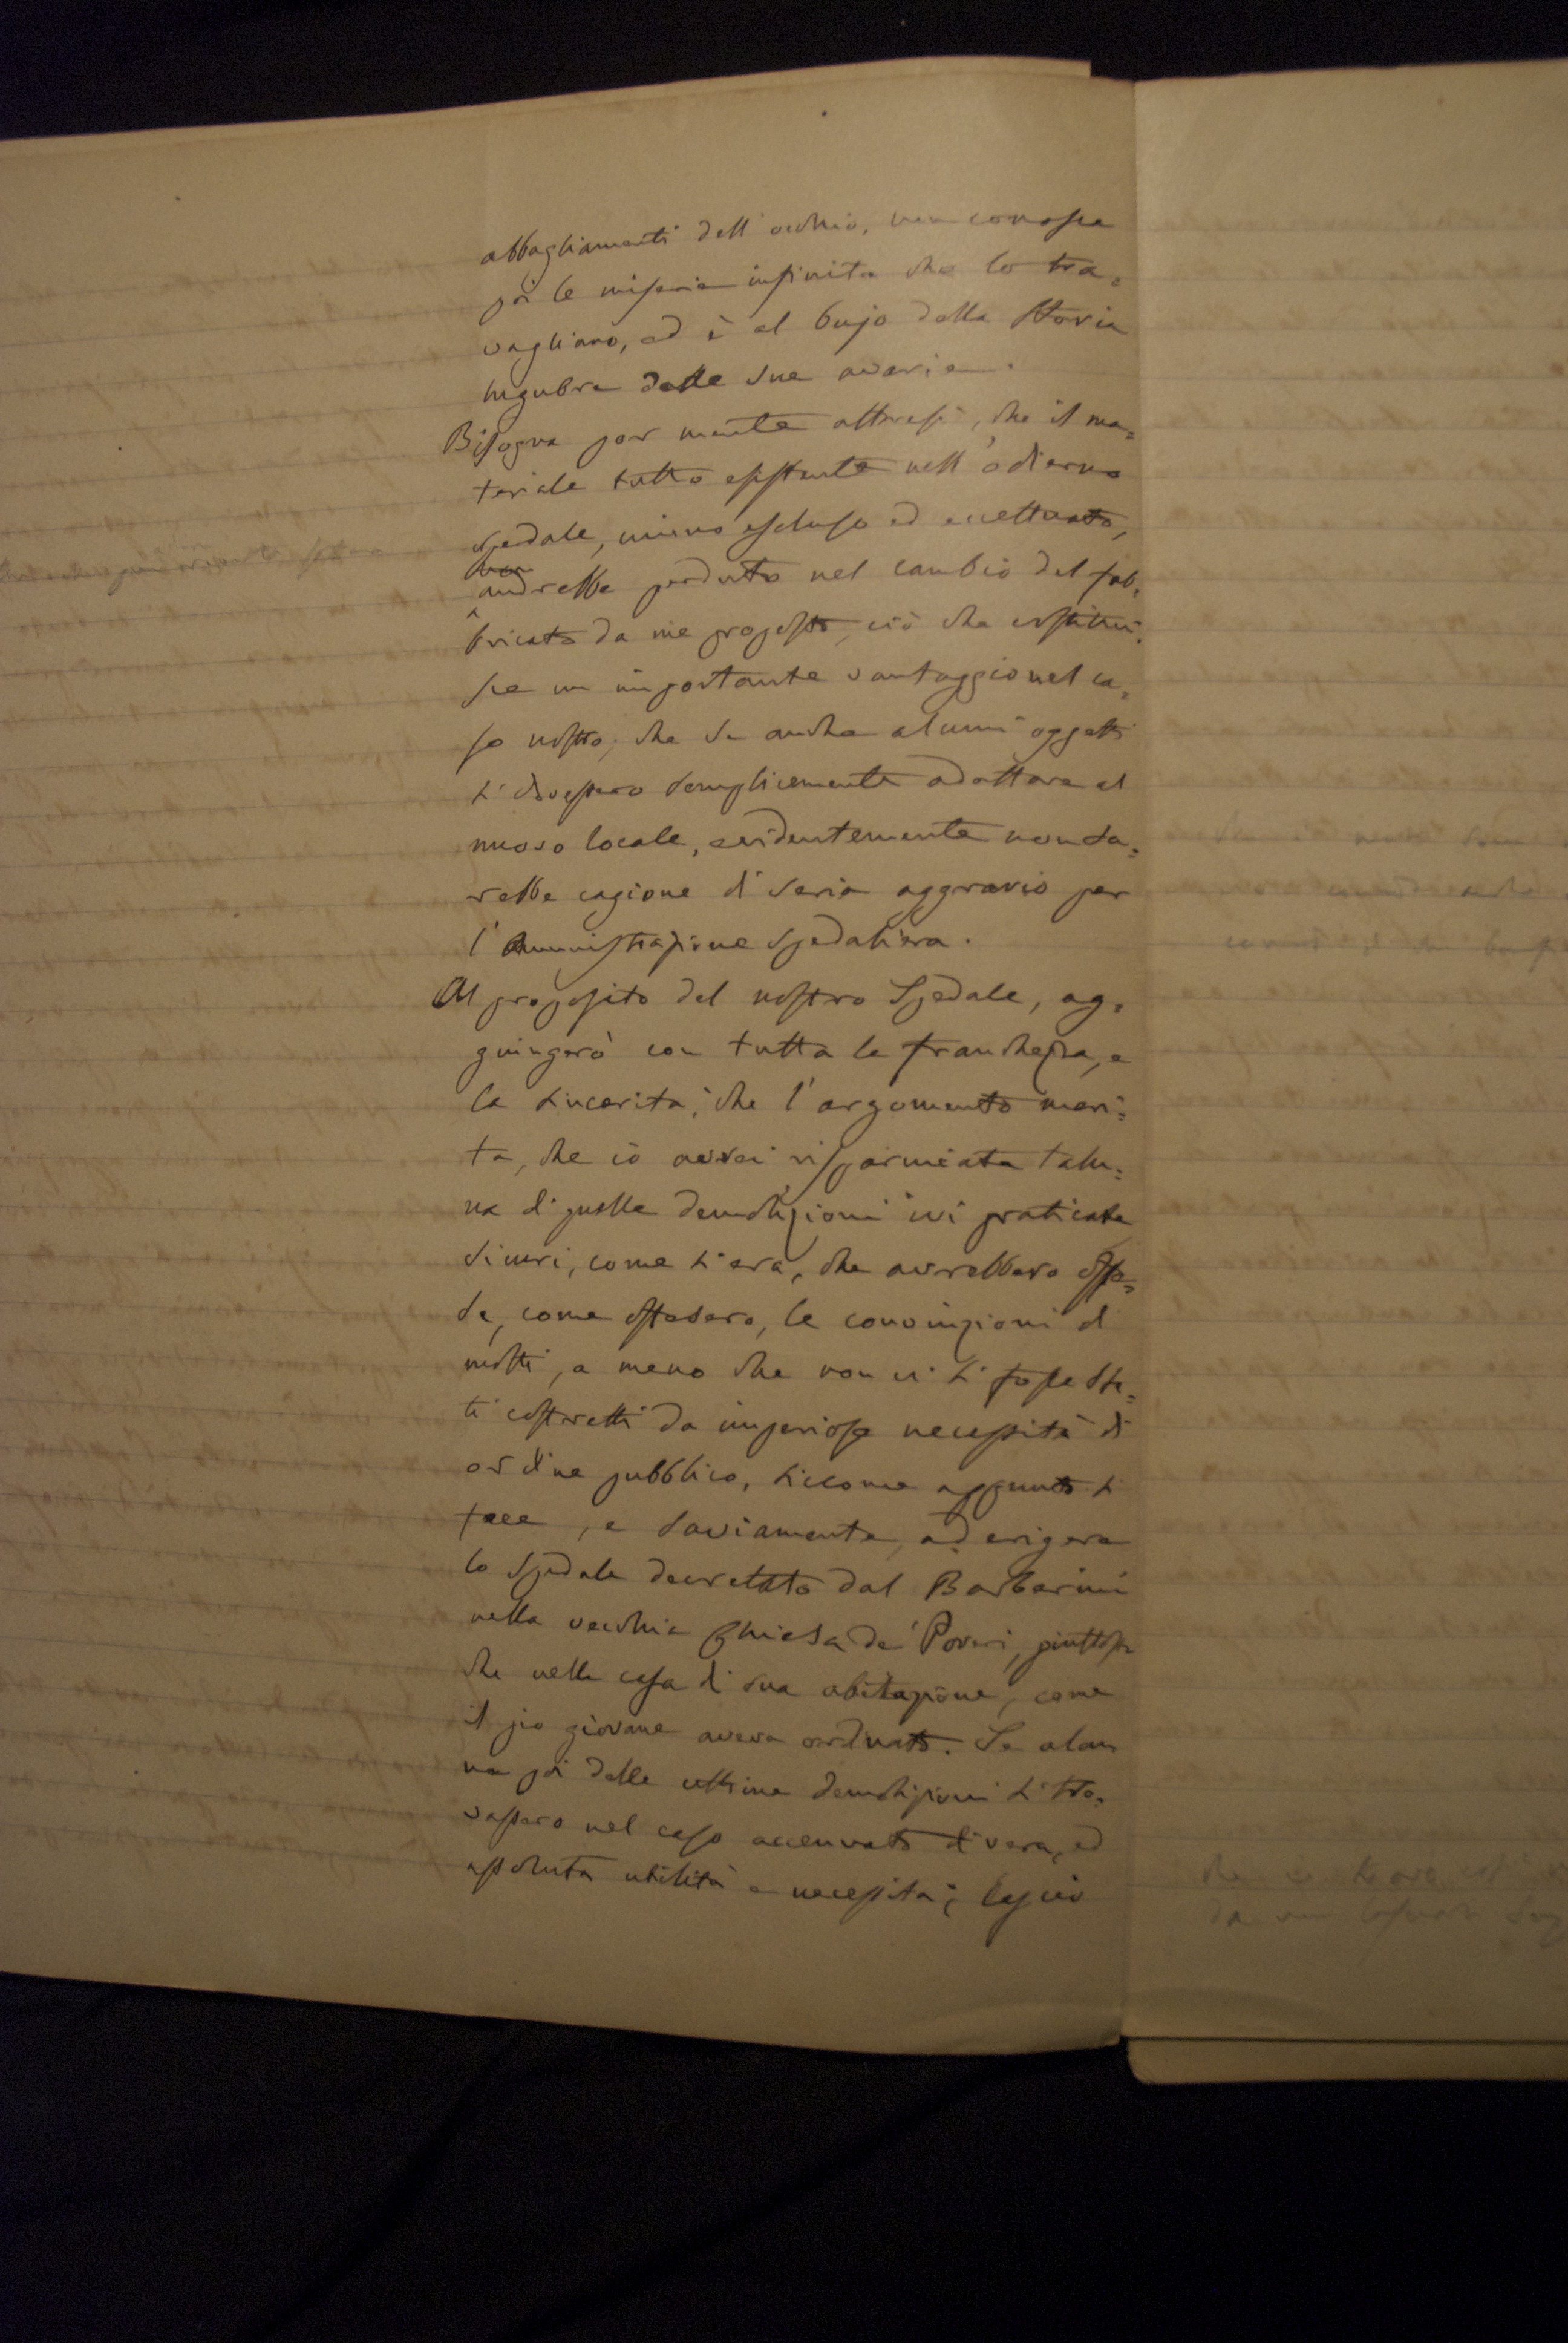 abbagliamenti dell'occhio, non conosce
poi le miserie infinite che lo tra=
vagliano, ed è al bujo della storia
lugubre delle sue avarie.
Bisogna por mente altresì, che il ma=
teriale tutto esistente nell'odierno
spedale, niuno escluso ed eccettuato,
non
andrebbe perduto nel cambio del fab=
bricato da me proposto, ciò che costitui=
sce un importante vantaggio nel ca=
so nostro; che se anche alcuni oggetti
si dovessero semplicemente adattare al
nuovo locale, evidentemente non sa=
rebbe cagione di serio aggravio per
l'Amministrazione spedaliera.
Al proposito del nostro Spedale, ag=
giungerò con tutta la franchezza, e
la sincerità, che l'argomento meri=
ta, che io avrei risparmiata talu=
na di quelle demolizioni ivi praticate
sicuri, come si era, che avrebbero offe=
se, come offesero, le convinzioni di
molti, a meno che non vi si fosse sta=
ti costretti da imperiose necessità di
ordine pubblico, siccome appunto si
fece, e saviamente, ad erigere
lo Spedale decretato dal Barberini
nella vecchia Chiesa de' Poveri, piuttosto
che nella casa di sua abitazione, come
il pio giovane aveva ordinato. Se alcu
na poi delle ultime demolizioni si tro=
vassero nel caso accennato di vera, ed
assoluta utilità e necessità;